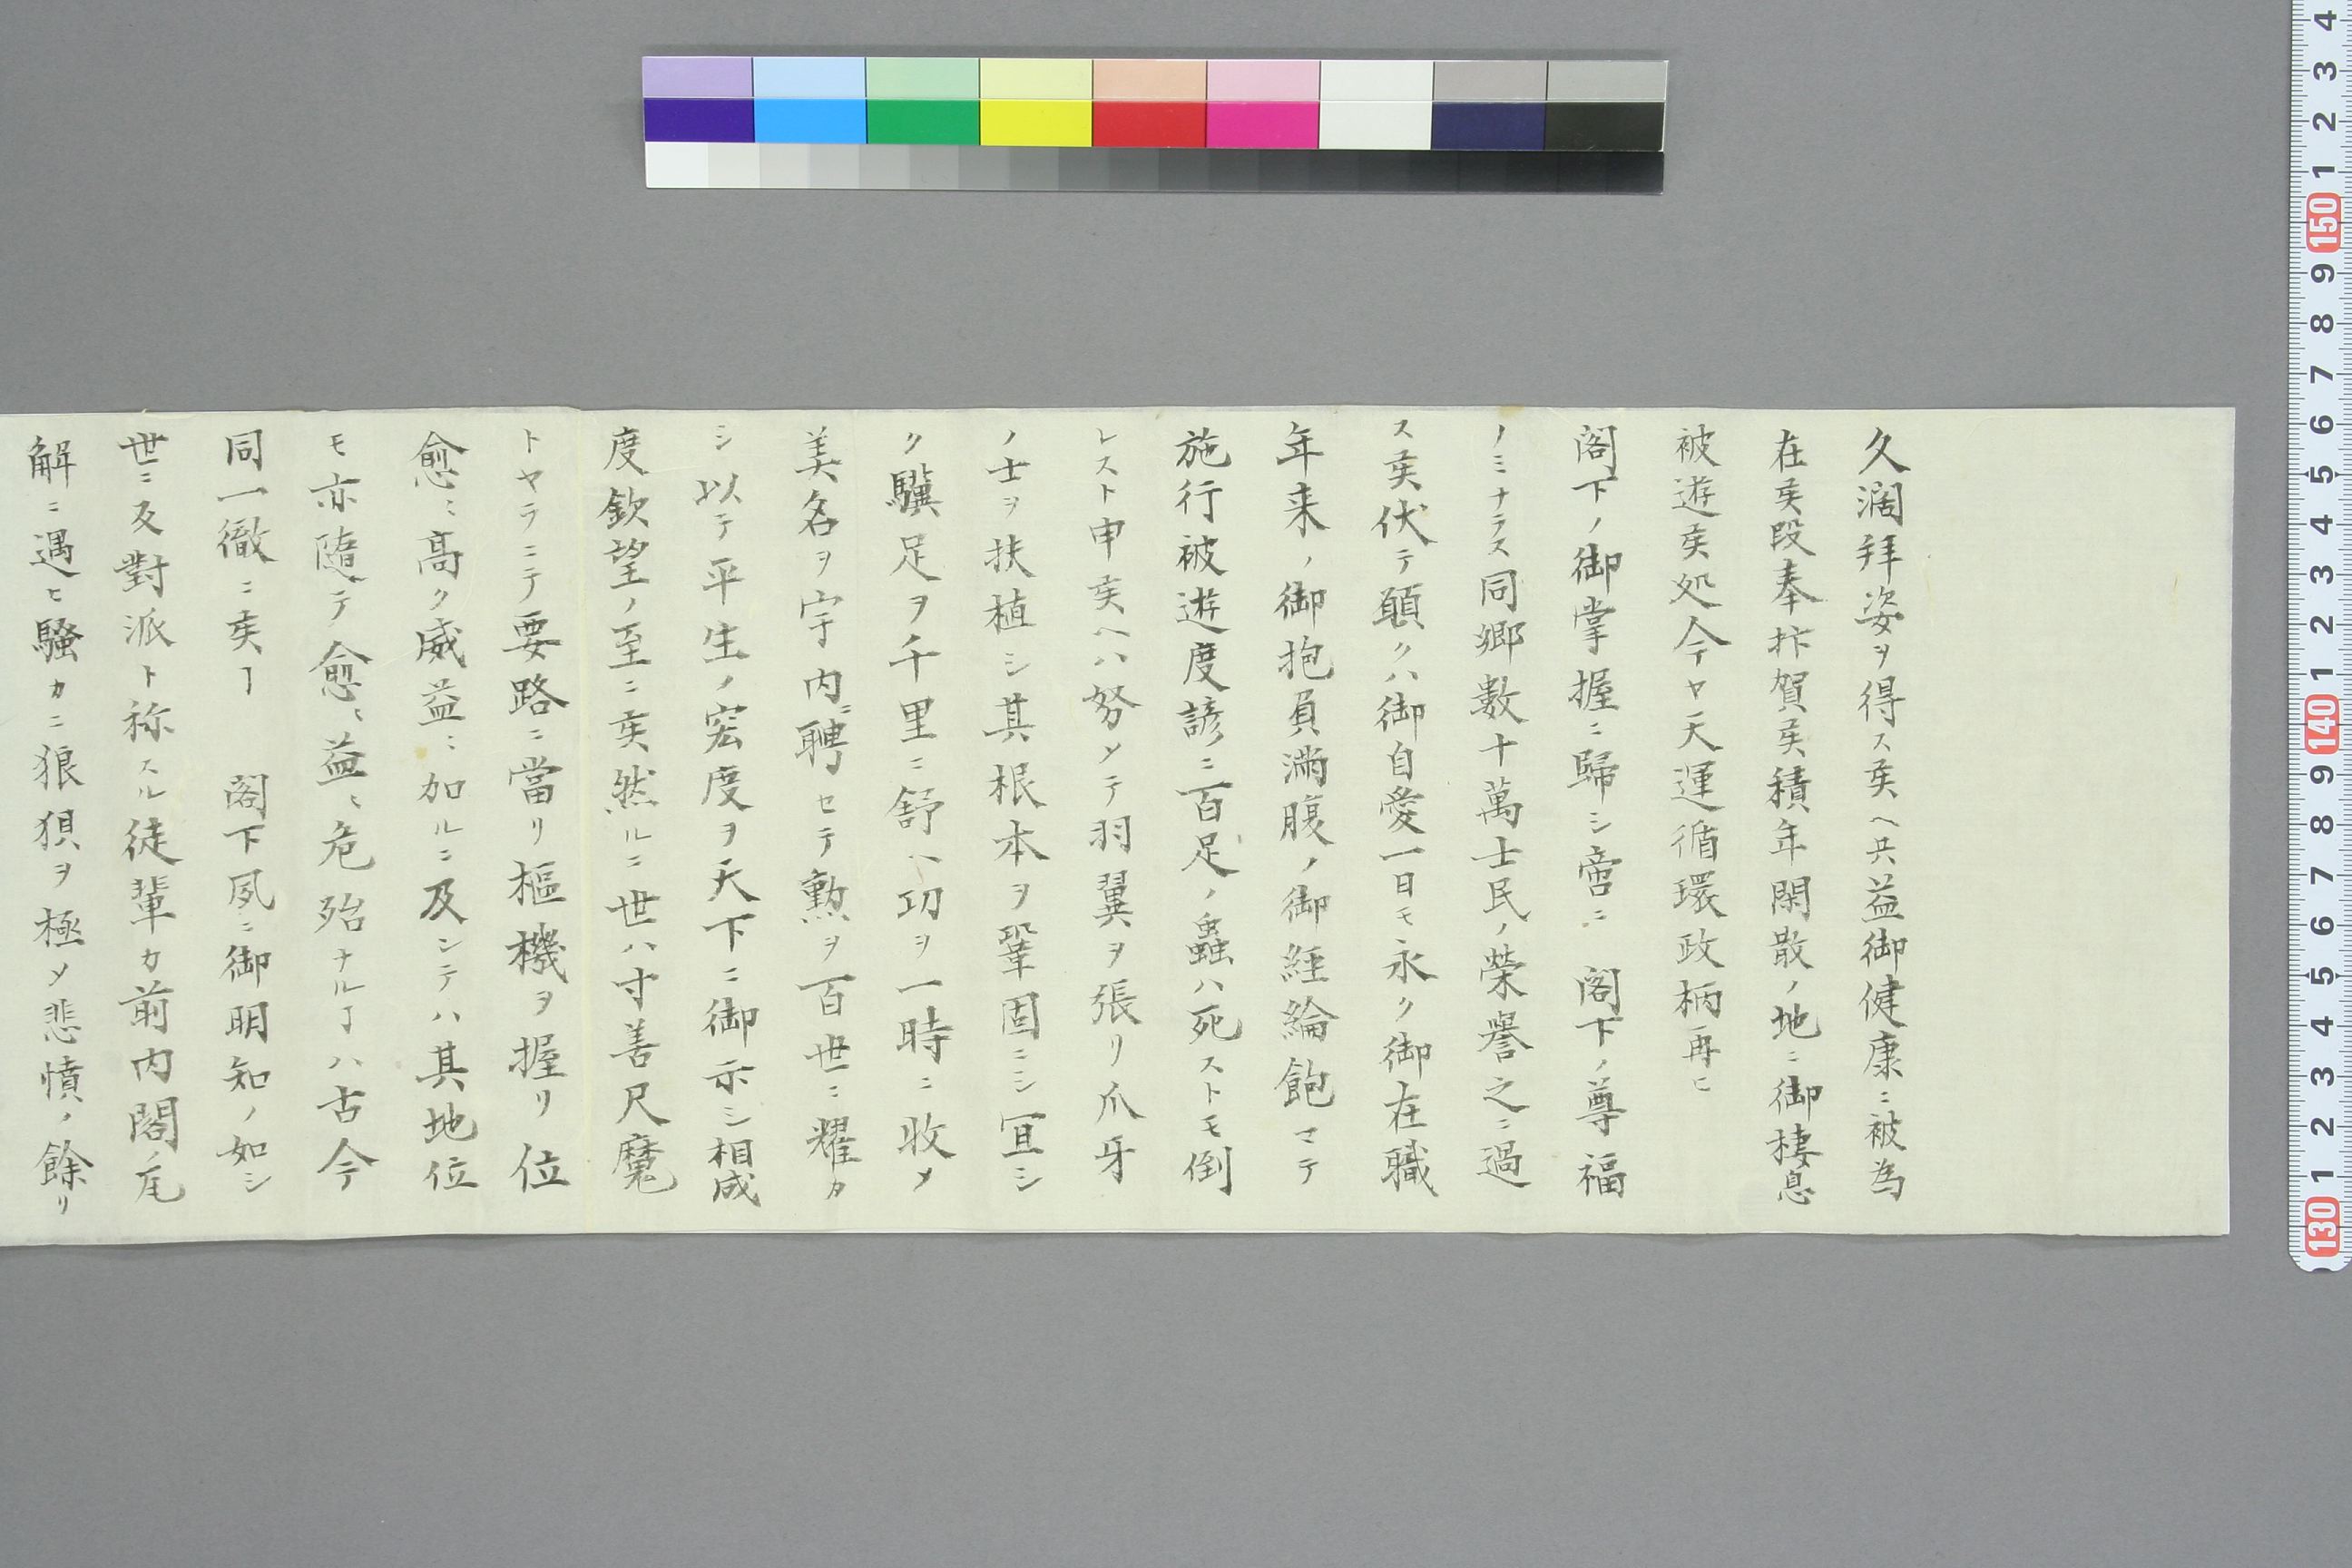 久濶拜姿ヲ得ス矦ヘ共益御健康ニ被為
在矦段奉抃賀矦積年閑散ノ地ニ御棲息
被遊矦処今ヤ天運循環政柄再ヒ
閣下ノ御掌握ニ歸シ啻ニ 閣下ノ尊福
ノミナラス同郷數十萬士民ノ榮譽之ニ過
ス矦伏テ願クハ御自愛一日モ永ク御在職
年来ノ御抱負滿腹ノ御経綸飽マテ
施行被遊度諺ニ百足ノ蟲ハ死ストモ倒
レスト申矦ヘハ努メテ羽翼ヲ張リ爪牙
ノ士ヲ扶植シ其根本ヲ鞏固ニシ冝シ
ク驥足ヲ千里ニ舒ヘ功ヲ一時ニ收メ
美名ヲ宇内ニ聘セテ勲ヲ百世ニ耀カ
シ以テ平生ノ宏度ヲ天下ニ御示シ相成
度欽望ノ至ニ矦然ルニ世ハ寸善尺魔
トヤラニテ要路ニ當リ樞機ヲ握リ位
愈〻高ク威益〻加ルニ及ンテハ其地位
モ亦隨テ愈〻益〻危殆ナルヿハ古今
同一徹ニ矦ヿ 閣下夙ニ御明知ノ如シ
世ニ反對派ト称スル徒輩カ前内閣ノ瓦
解ニ遇ヒ騒カニ狼狽ヲ極メ悲憤ノ餘リ
4 3 2 1 150 9 8 7 6 5 4 3 2 1 140 9 8 7 6 5 4 3 2 1 130